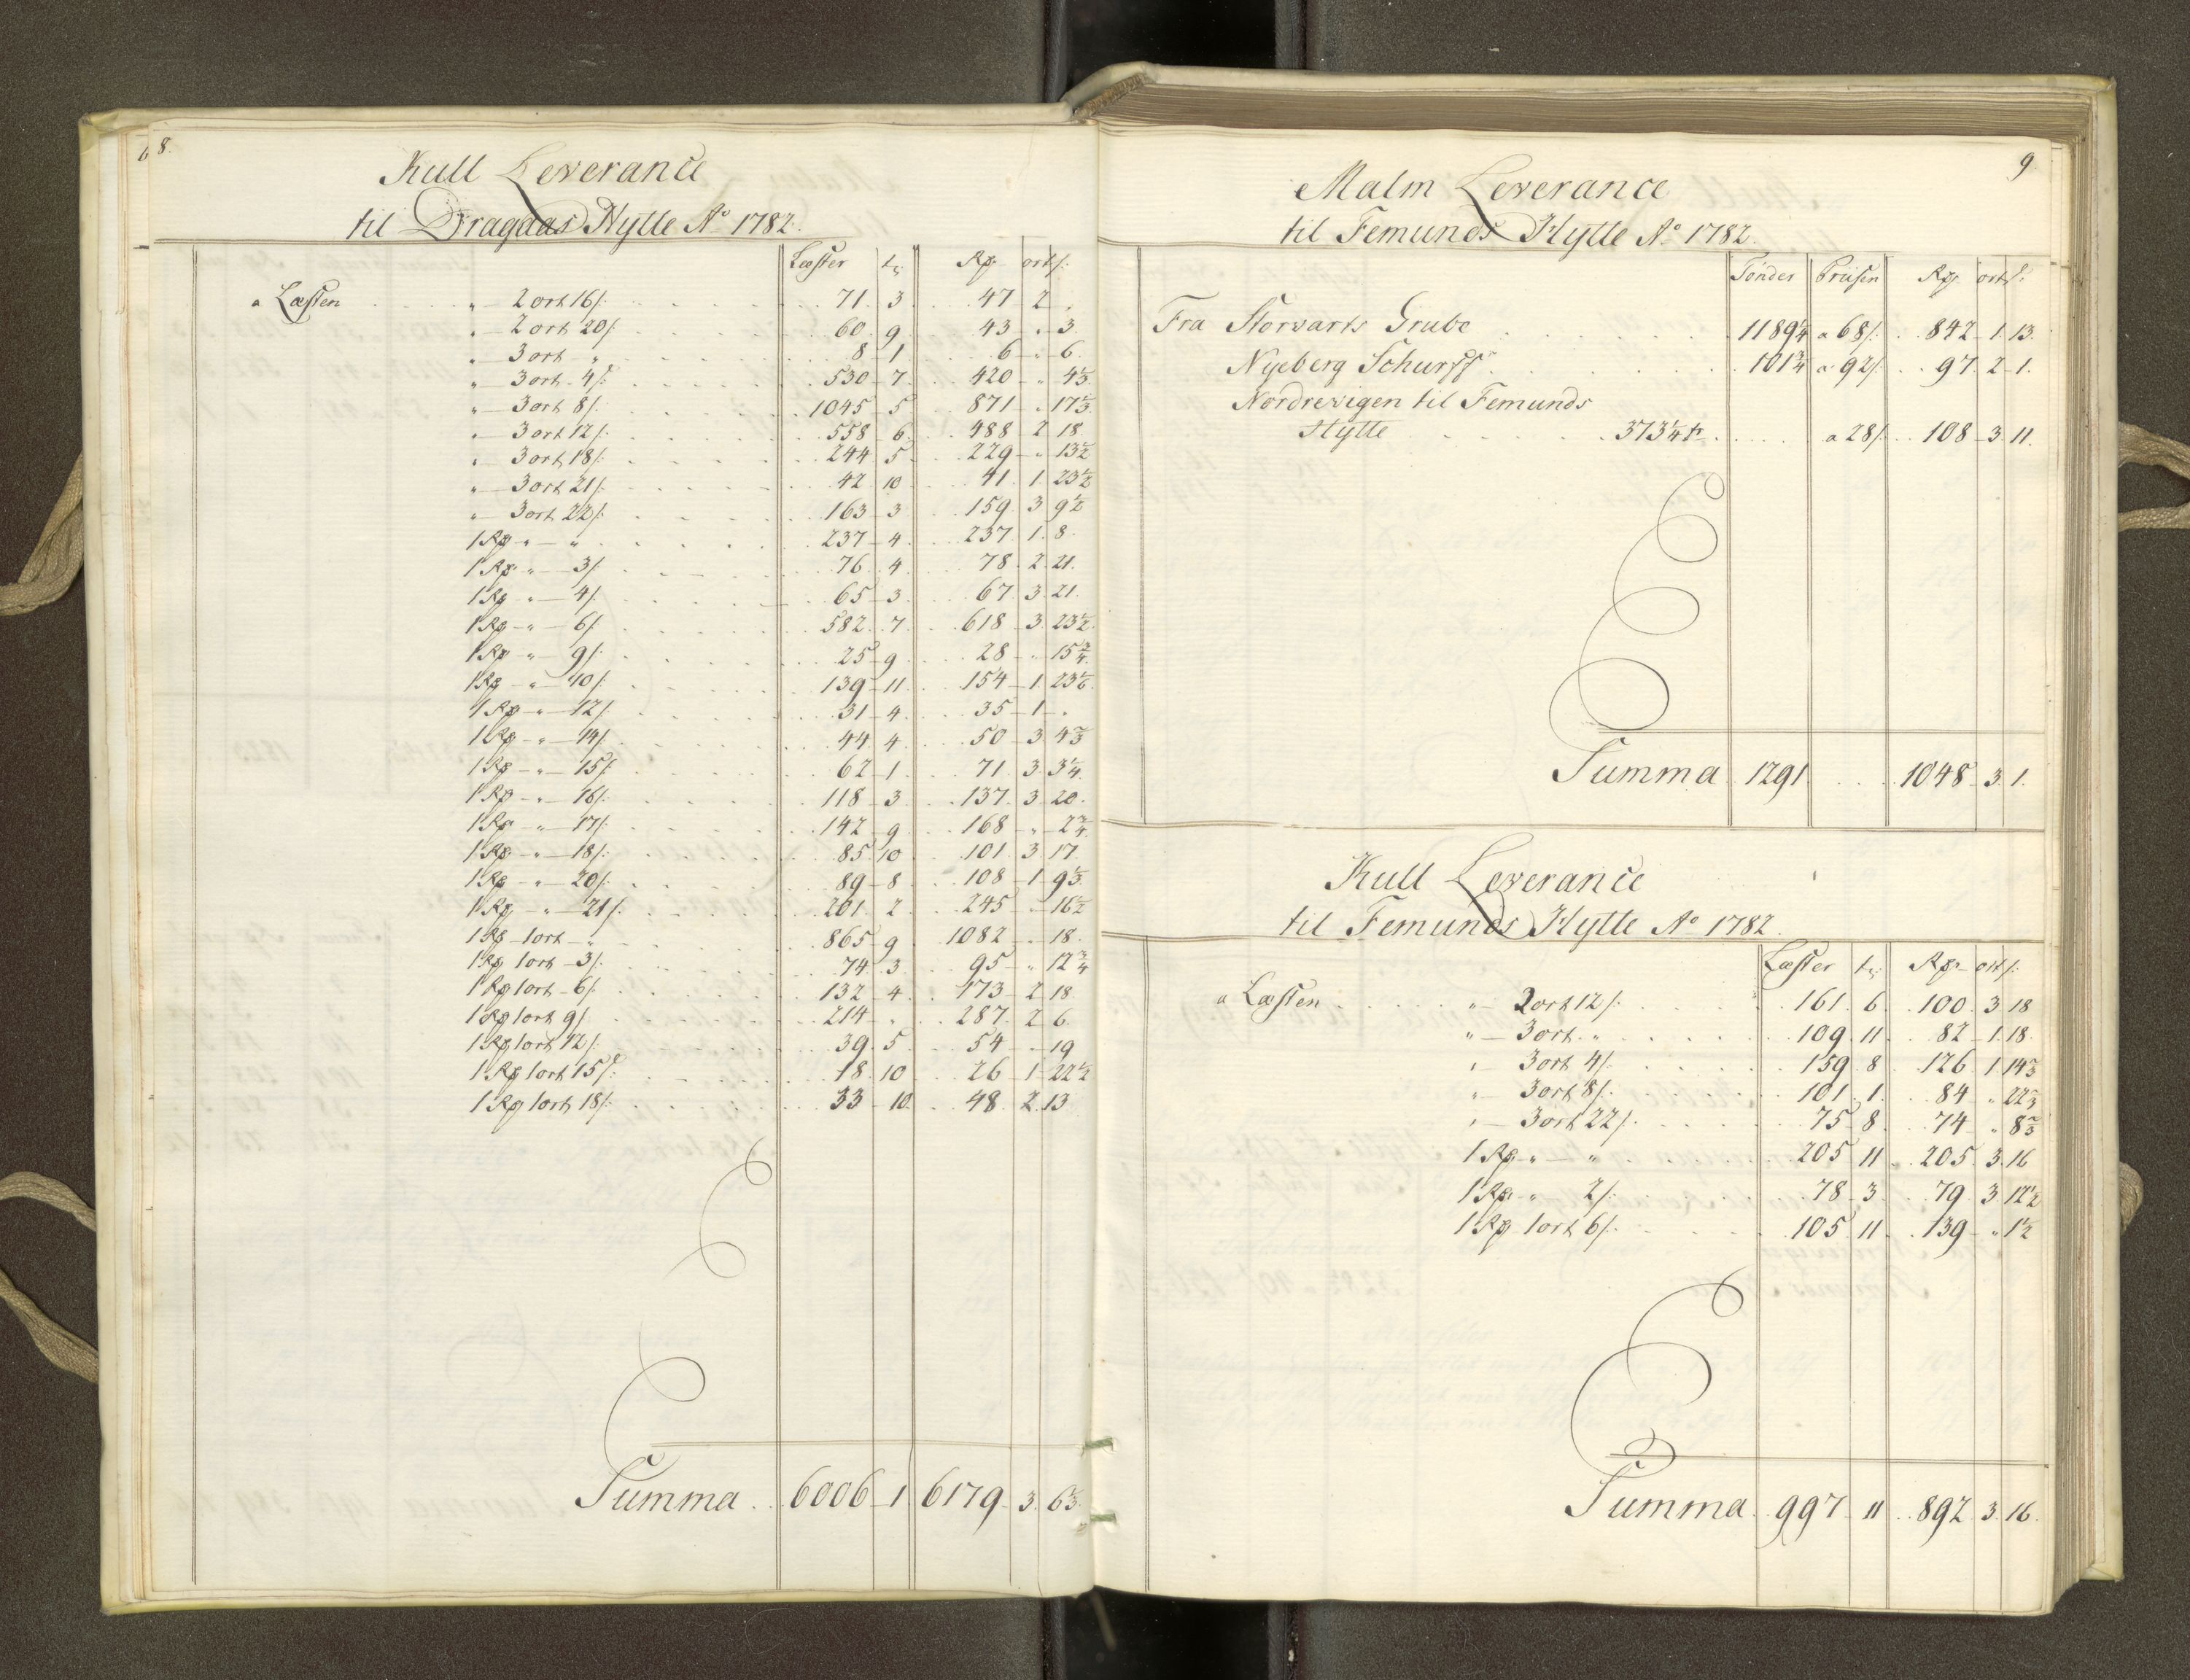 8.
Kull Leverance
til Dragaas Hytte Ao 1782.
Læster tr Rp ort s:
a Læsten " 2 ort 16 s: 71 3 47 2 .
" 2 ort 20 s: 60 9 43 " 3
" 3 ort " 8 1 6 " 6
" 3 ort 4 s: 530 7 420 " 4 1/3
" 3 ort 8 s: 1045 5 871 " 17 1/3
" 3 ort 12 s: 558 6 488 2 18
" 3 ort 18 s: 244 5 229 " 13 1/2
" 3 ort 21 s: 42 10 41 1 23 1/2
" 3 ort 22 s: 163 3 159 3 9 1/2
1 Rp " " 237 4 237 1 8
1 Rp " 3 s: 76 4 78 2 21
1 Rp " 4 s: 65 3 67 3 21
1 Rp " 6 s: 582 7 618 3 23 1/2
1 Rp " 9 s: 25 9 28 " 15 3/4
1 Rp " 10 s: 139 11 154 1 23 1/6
1 Rp " 12 s: 31 4 35 1 .
1 Rp " 14 s: 44 4 50 3 4 2/3
1 Rp " 15 s: 62 1 71 3 3 1/4
1 Rp " 16 s: 118 3 137 3 20
1 Rp " 17 s: 142 9 168 " 2 3/4
1 Rp " 18 s: 85 10 101 3 17
1 Rp " 20 s: 89 8 108 1 9 1/3
1 Rp " 21 s: 201 2 245 " 16 1/2
1 Rp 1 ort " 865 9 1082 " 18
1 Rp 1 ort 3 s: 74 3 95 " 12 3/4
1 Rp 1 ort 6 s: 132 4 173 2 18
1 Rp 1 ort 9 s: 214 " 287 2 6
1 Rp 1 ort 12 s: 39 5 54 " 19
1 Rp 1 ort 15 s: 18 10 26 1 22 1/2
1 Rp 1 ort 18 s: 33 10 48 2 13
Summa 6006 1 6179 3 6 1/3
9
Malm Leverance
til Femunds Hytte Ao 1782.
Tönder Priisen Rp ort s:
Fra Storvarts Grube 1189 1/4 a 68 s: 842 1 13
Nyeberg Schurff 101 3/4 a 92 s: 97 2 1
Nordrevigen til Femunds
Hytte 373 1/4 tr a 28 s: 108 3 11
Summa 1291 1048 3 1
Kull Leverance
til Femunds Hytte Ao 1782.
Læster tr Rp ort s:
a Læsten " 2 ort 12 s: 161 6 100 3 18
" 3 ort " 109 11 82 1 18
" 3 ort 4 s: 159 8 126 1 14 2/3
" 3 ort 8 s: 101 1 84 " 22 2/3
" 3 ort 22 s: 75 8 74 " 8 2/3
1 Rp " " 205 11 205 3 16
1 Rp " 2 s: 78 3 79 3 12 1/2
1 Rp 1 ort 6 s: 105 11 139 " 1 1/2
Summa 997 11 892 3 16